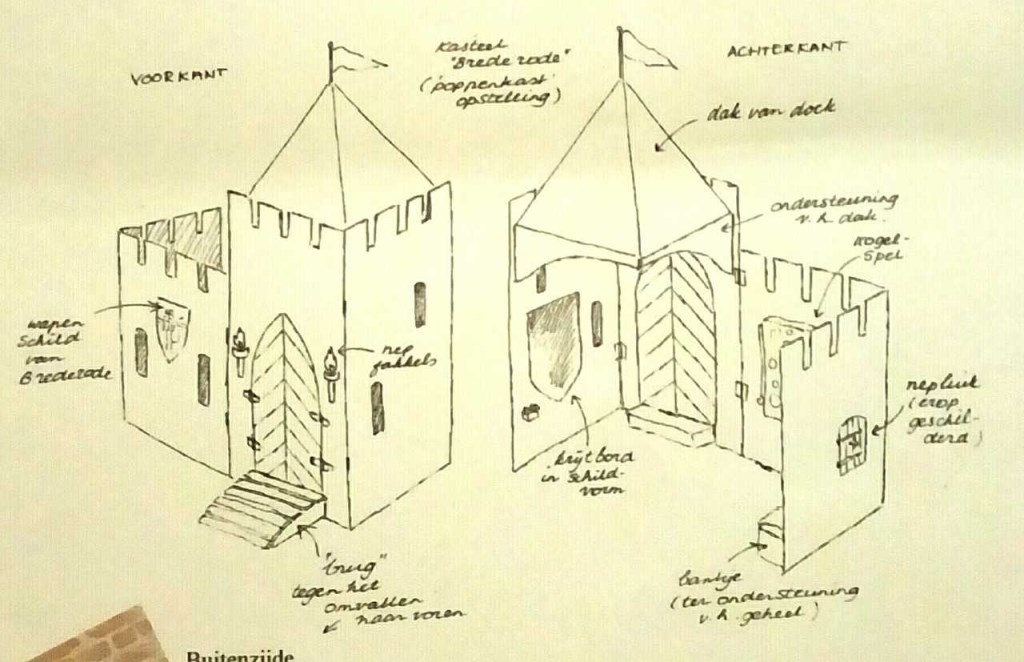 VOORKANT
Kasteel
"Brederode"
('poppenkast'
opstelling)
ACHTERKANT
dak van doek
ondersteuning
v.h. dak.
kogel-
spel
wapen
schild
van
Brederode
nep
fakkels
nepluik
(erop
geschil-
derd)
krijtbord
in schild-
vorm
"brug"
tegen het
omvallen
naar voren
bankje
(ter ondersteuning
v.h. geheel)
Buitenzijde